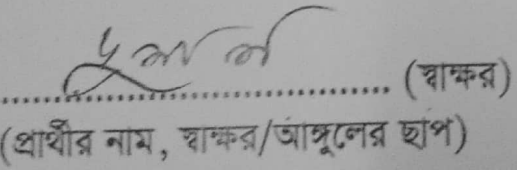 (স্বাক্ষর)
(প্রার্থীর নাম, স্বাক্ষর/আঙ্গুলের ছাপ)